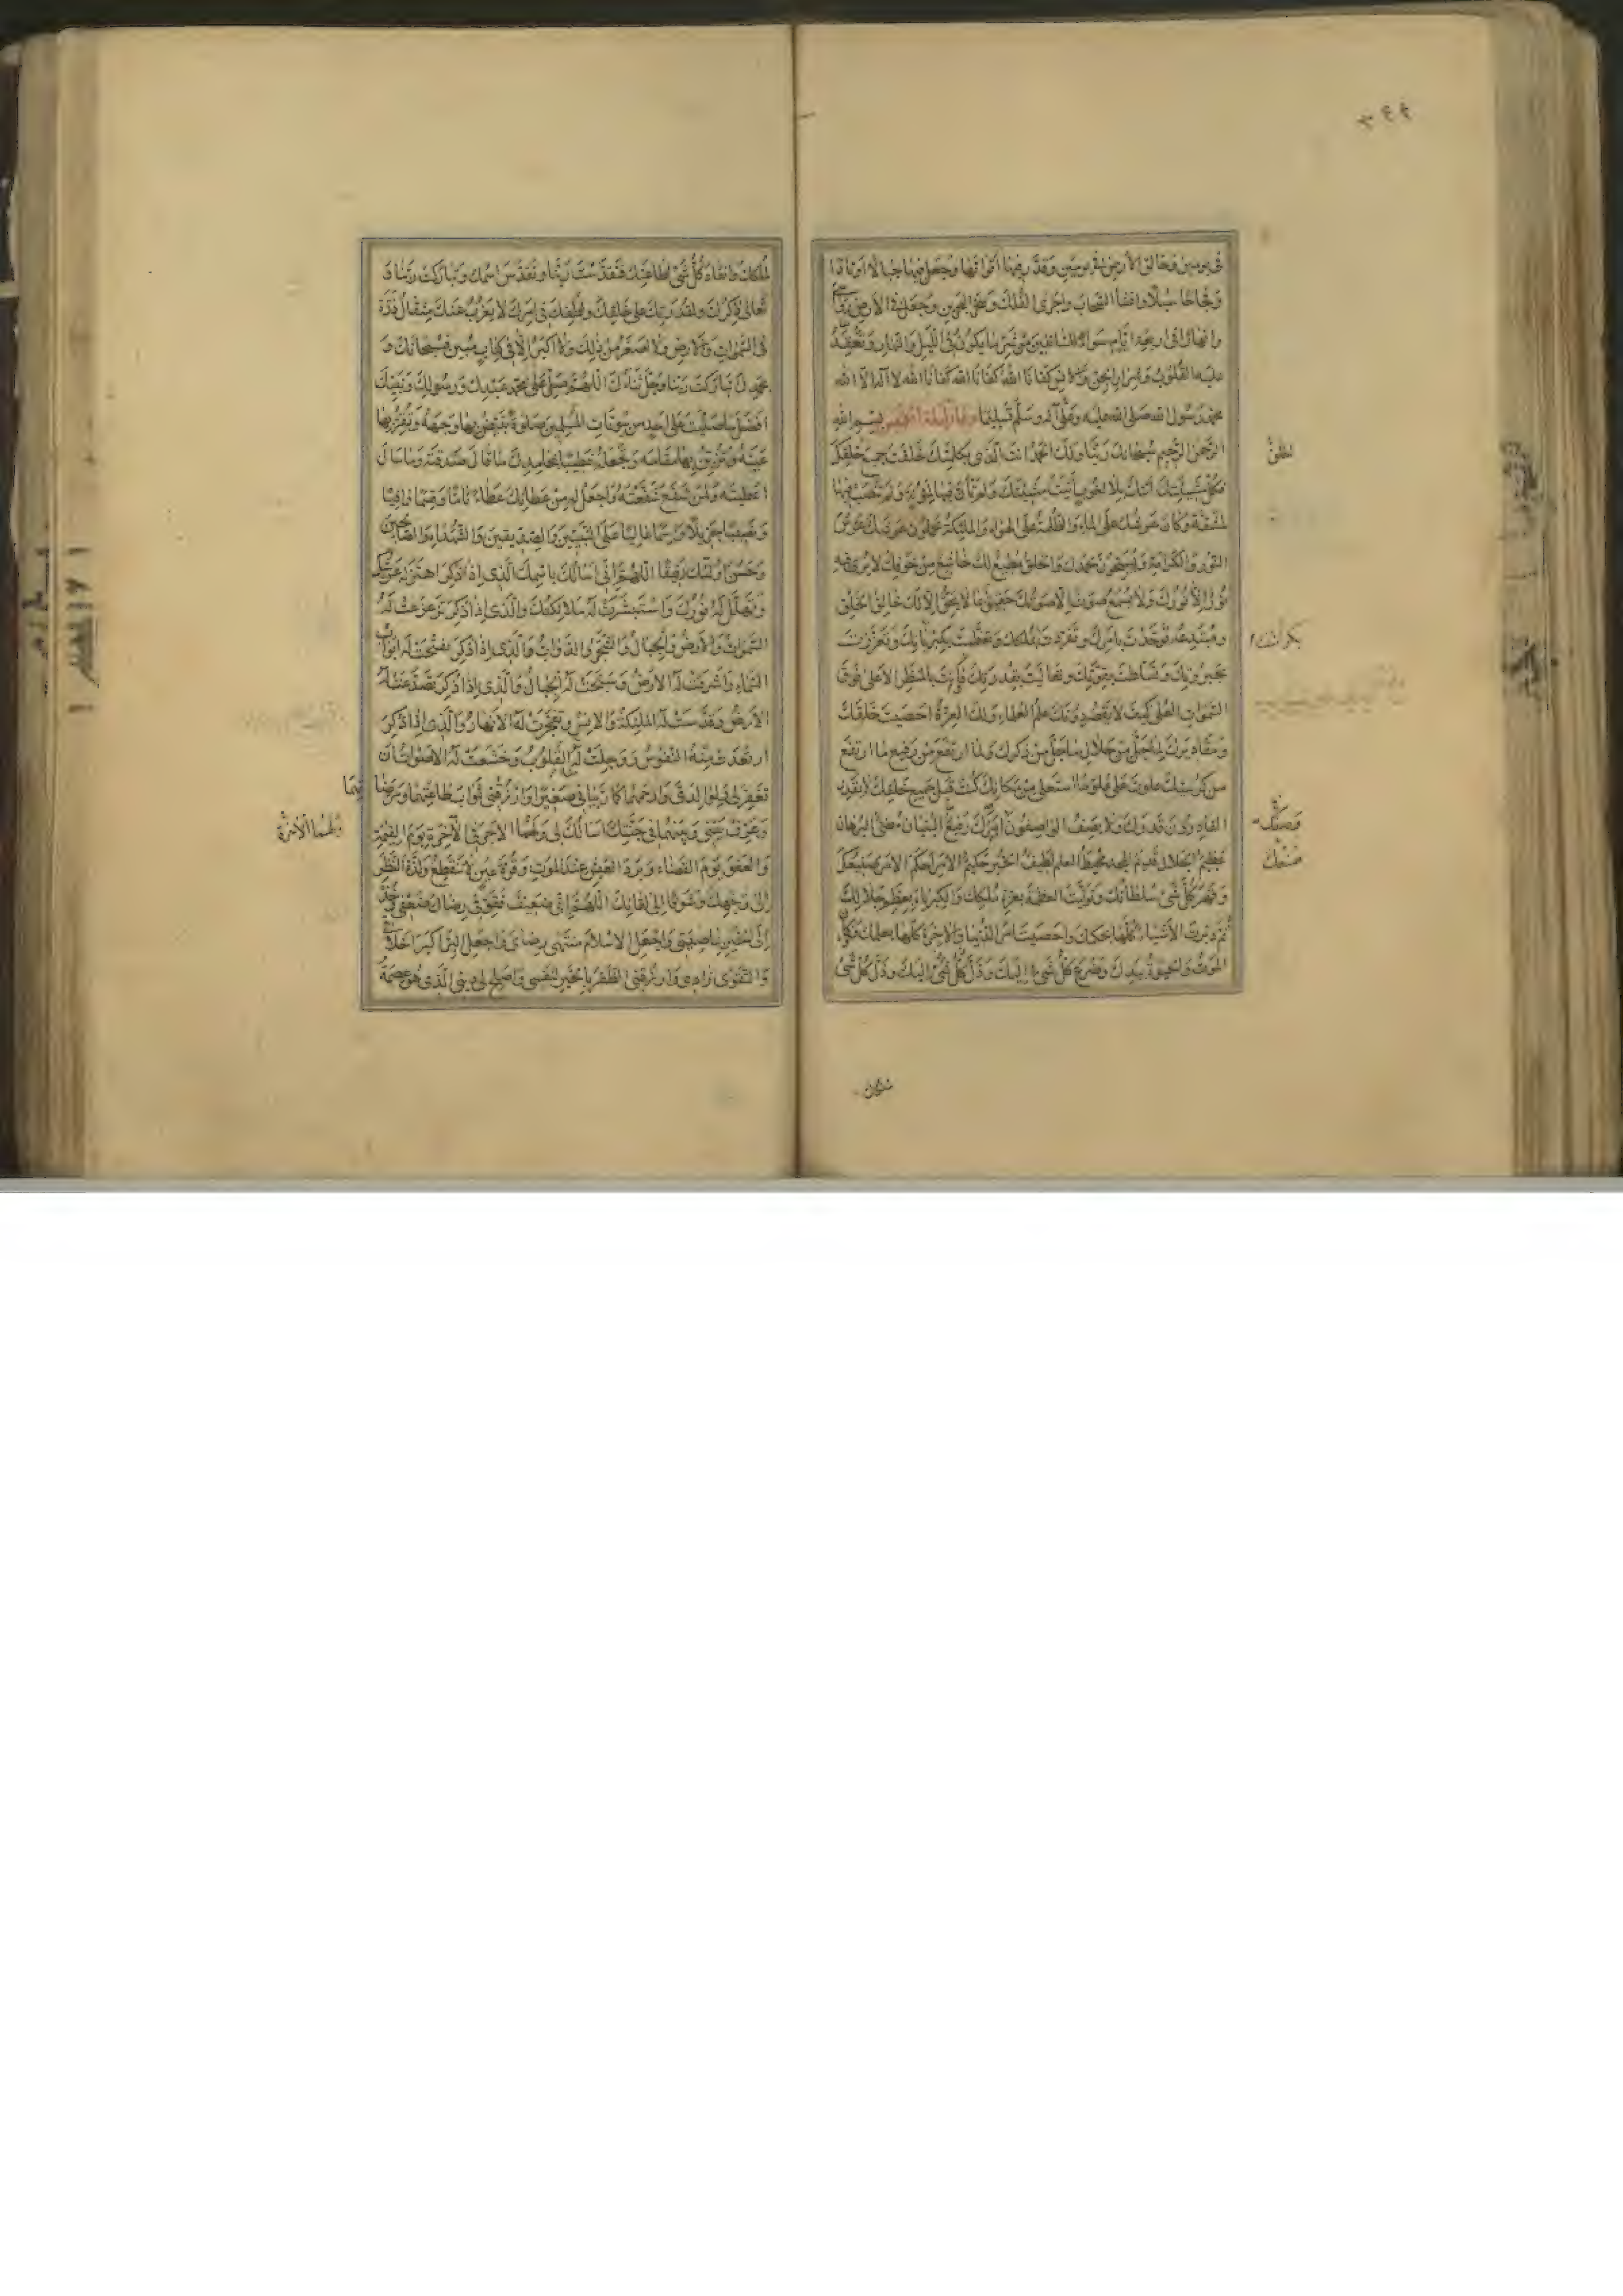 في يومين وخالق الأرض في يومين وقدر فيها أقواتها وجعل فيها جبالا أوتادا
وفجاجا سبلا وأنشأ السحاب وأجرى الفلك وسخر البحرين وجعل في الأرض رواسي
وأنهارا في أربعة أيام سواء للسائلين من شر ما يكون في الليل والنهار وتعقد
عليه القلوب وشرار الجن والانس كفانا الله كفانا الله كفانا الله لا اله الا الله
محمد رسول الله صلى الله عليه وعلى آله وسلم تسليما دعاء ليلة الخميس بسم الله
الرحمن الرحيم سبحانك ربنا ولك الحمد أنت الذي بكلمتك خلقت جميع خلقك
فكل مشيتك أتتك بلا لغوب أثبت مشيتك ولم تأن فيها لمؤنة ولم تنصب فيها
لمشقة وكان عرشك على الماء والظلمة على الهواء والملئكة يحملون عرشك عرش
النور والكرامة ويسبحون بحمدك والخلق مطيع لك خاشع من خوفك لا يرى فيه
نور إلا نورك ولا يسمع صوت الا صوتك حقيق بما لا يحق إلا لك خالق الخلق
ومبتدعه توحدت بامرك وتفردت بملكك وتعظمت بكبريائك وتعززت
بجبروتك وتسلطت بقوتك وتعاليت بقدرتك فأنت بالمنظر الاعلى فوق
السموات العلى كيف لا يقصر دونك علم العلماء ولك العزة احصيت خلقك
ومقاديرك لما جل من جلال ما جل من ذكرك ولما ارتفع من رفيع ما ارتفع
من كرسيك علوت على علو ما استعلى من مكانك كنت قبل جميع خلقك لا يقدر
القادرون قدرك ولا يصف الواصفون امرك رفيع البنيان مضئ البرهان
عظيم الجلال قديم المجد محيط العلم لطيف الخبر حكيم الامر احكم الامر صنعك
وقهر كل شئ سلطانك وتوليت العظمة بعزة ملكك والكبرياء بعظم جلالك
ثم دبرت الأشياء كلها بحكمك واحصيت امر الدنيا والآخرة كلها بعلمك وكان
الموت والحيوة بيدك وضرع كل شئ إليك وذل كل شئ
لملكك وانقاد كل شئ لطاعتك فتقدست ربنا وتقدس اسمك وتباركت ربنا و
تعالى ذكرك وبقدرتك على خلقك ولطفك في امرك لا يعزب عنك مثقال ذرة
في السموات والارض ولا اصغر من ذلك ولا أكبر إلا في كتاب مبين فسبحانك و
بحمدك تباركت ربنا وجل ثناؤك اللهم صل على محمد عبدك ورسولك ونبيك
افضل ما صليت على احد من بيوتات المسلمين صلوة تبيض بها وجهه وتقر بها
عينه وتزين بها مقامه وتجعله خطيبا بمحامدك ما قال صدقته وما سال
اعطيته ولمن شفع شفعته واجعل له من عطائك عطاء تاما وقسما وافيا
ونصيبا جزيلا واسما عاليا على النبيين والصديقين والشهداء والصالحين
وحسن أولئك رفيقا اللهم إني اسالك باسمك الذي إذا ذكر اهتز له عرشك
وتهلل له نورك واستبشرت له ملائكتك والذي إذا ذكر تزعزعت له
السموات والأرض والجبال والشجر والدواب والذي إذا ذكر تفتحت له ابواب
السماء واشرقت له الارض وسبحت له الجبال والذي إذا ذكر تصدعت له
الارض وقدست له الملئكة والانس وتفجرت له الانهار والذي إذا ذكر
ارتعدت منه النفوس ووجلت له القلوب وخشعت له الاصوات أن
تغفر لي ولوالدي وارحمهما كما ربياني صغيرا وارزقني ثواب طاعتهما ومرضا
تهما
وعرف بيني وبينهما في جنتك اسالك لي ولهما الاجر في الآخرة يوم القيمة
والعفو يوم القضاء وبرد العيش عند الموت وقرة عين لا تنقطع ولذة النظر
إلى وجهك وشوقا إلى لقائك اللهم إني ضعيف فقو في رضاك ضعفي وخذ
إلى الخير بناصيتي واجعل الاسلام منتهى رضاي واجعل البر اكبر اخلاقي
والتقوى زادي وارزقني الظفر بالخير لنفسي واصلح لي ديني الذي هو عصمة